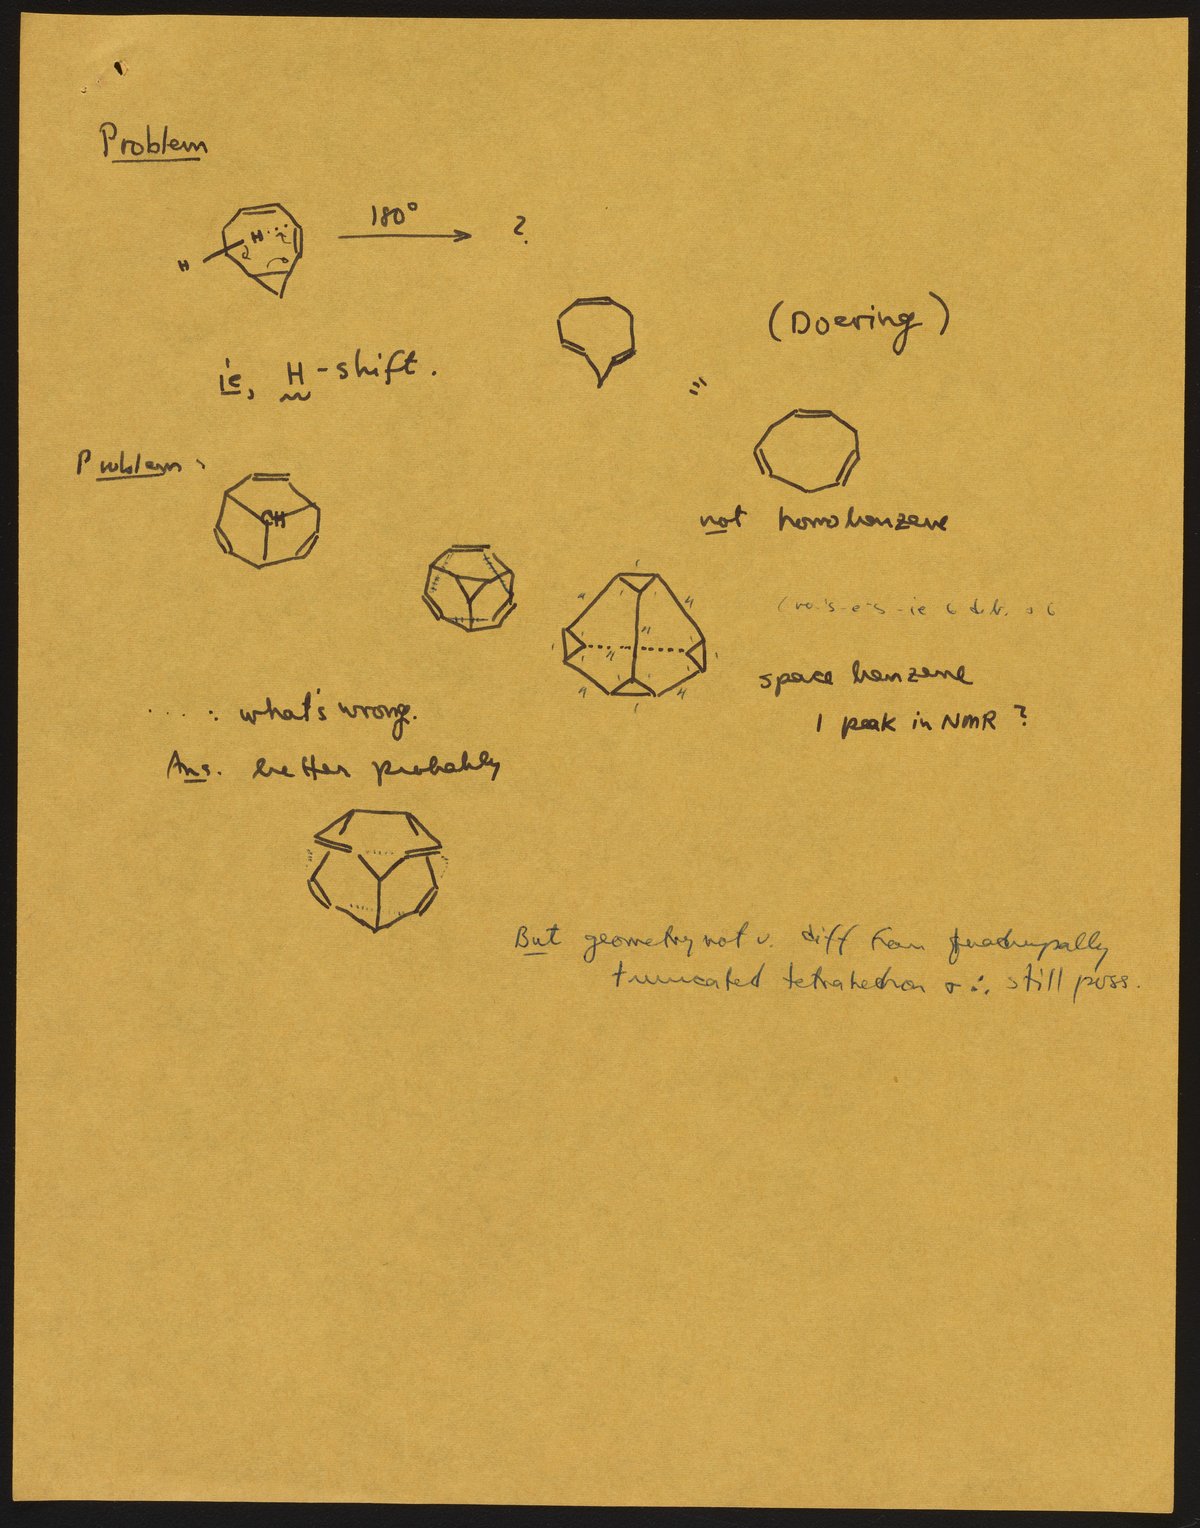 Problem
H H
180° ?
(Doering)
ie, H-shift.
≡
Problem:
CH
not homobenzene
space benzene
1 peak in NMR ?
.... : what's wrong.
Ans. better probably
But geometry not v. diff from quadrupally
truncated tetrahedron & ∴ still poss.